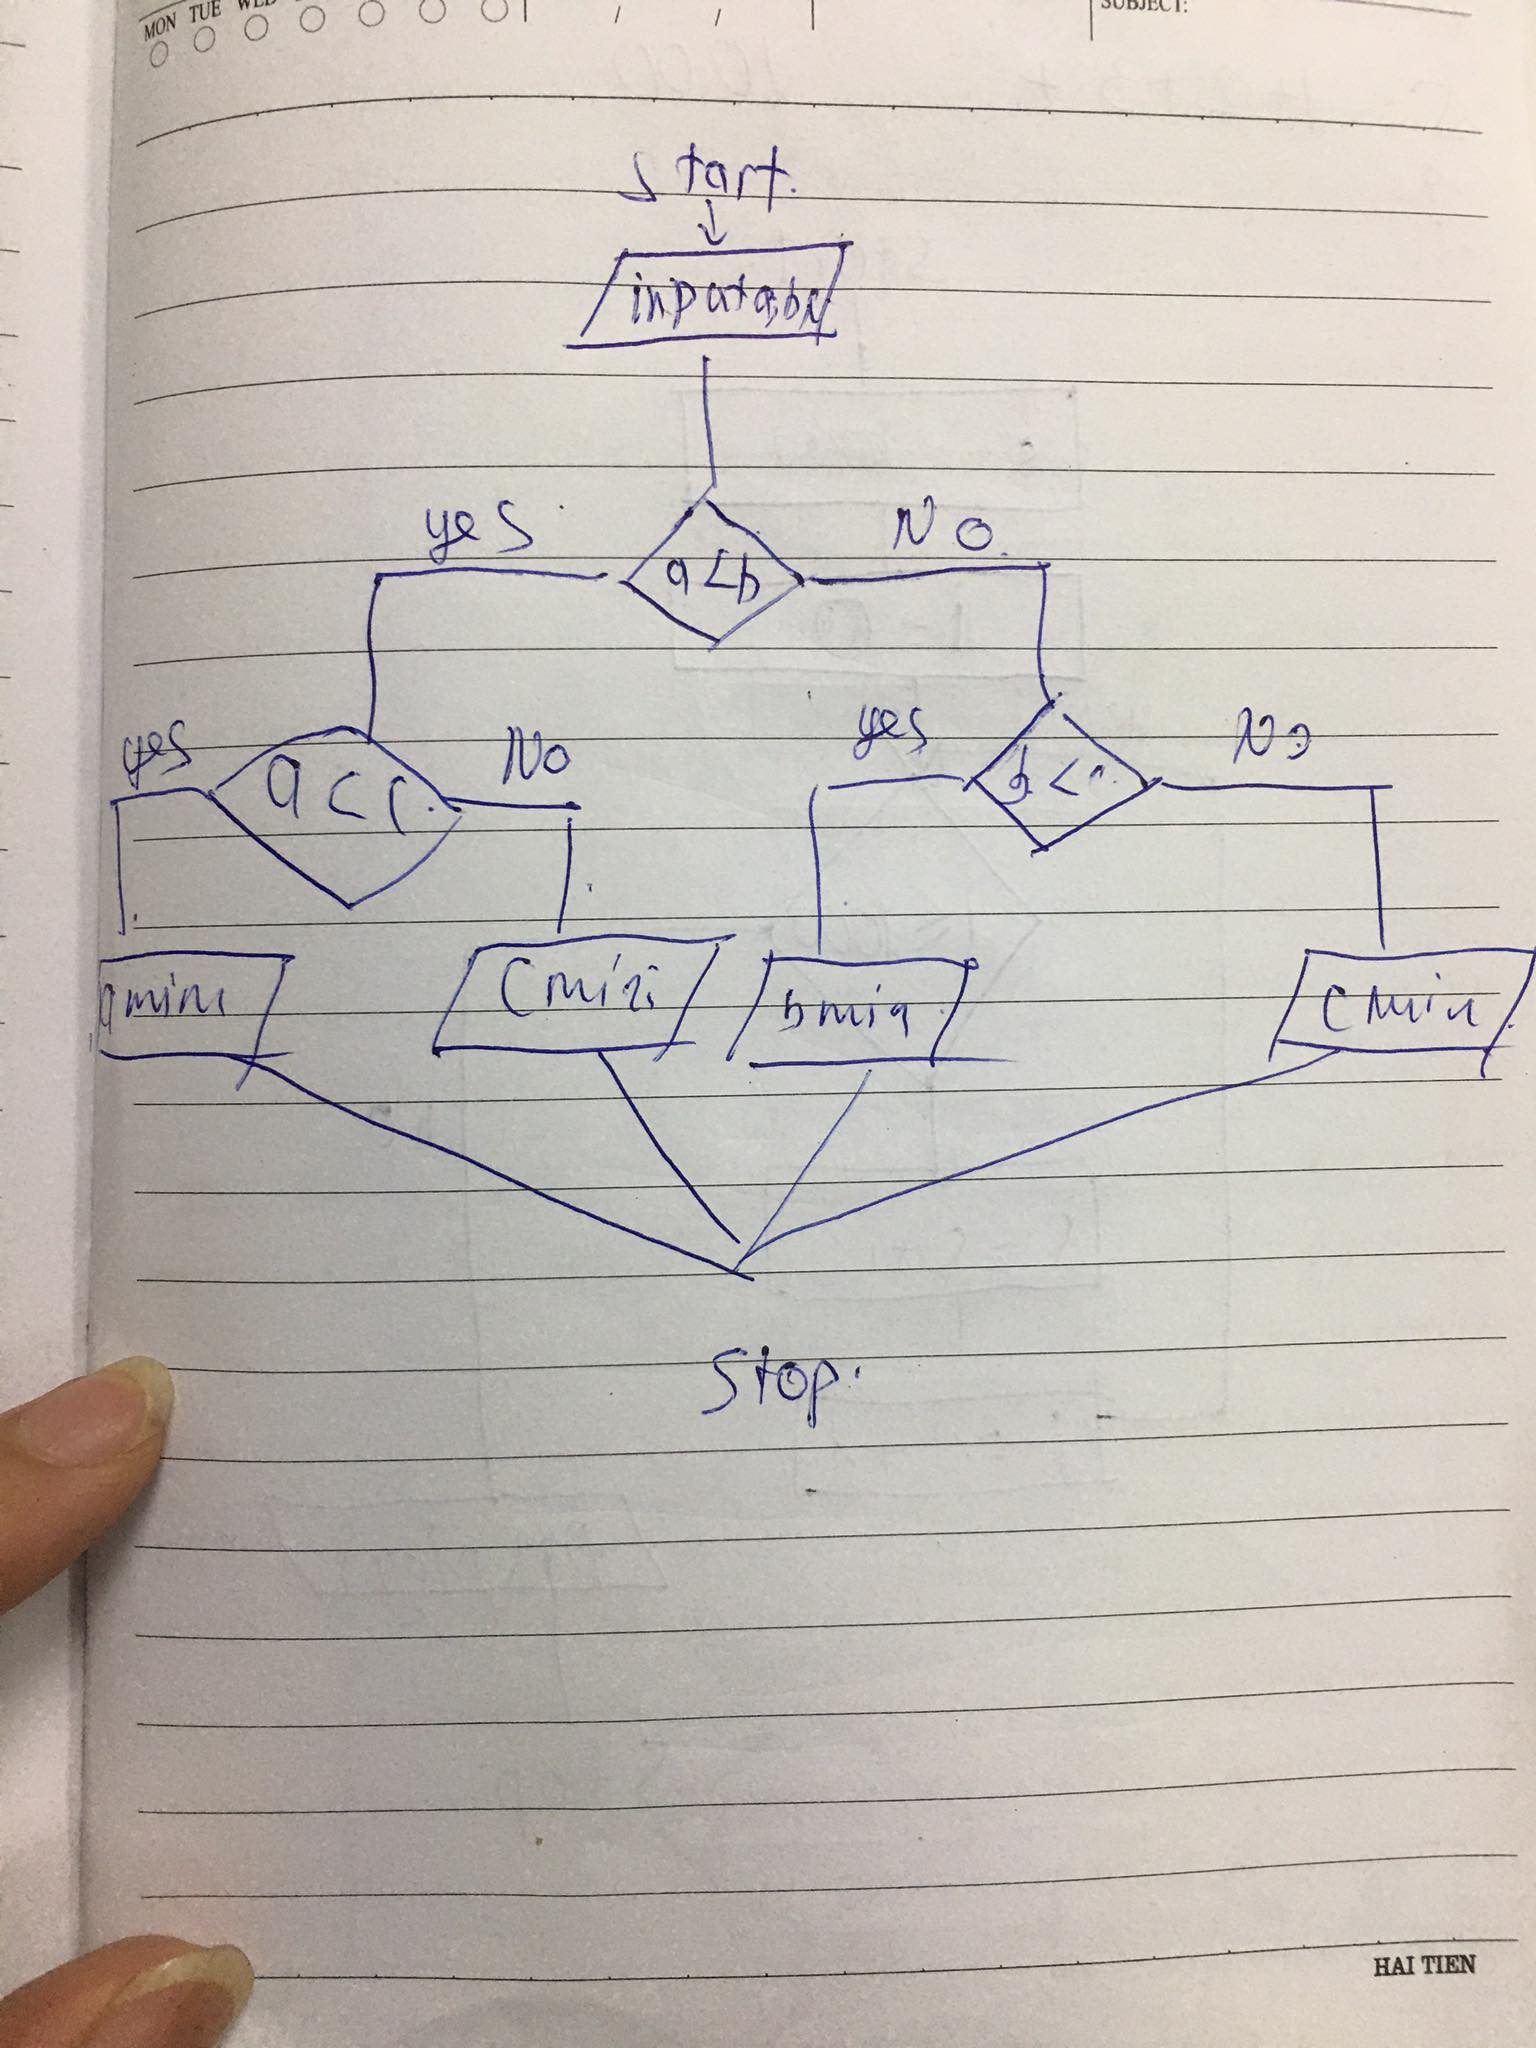 MON TUE WED
SUBJECT:
Start.
input a,b,c
yes
No.
a<b
yes
No
yes
No
a<c.
b<c
a min
C min
b min
C min
Stop.
HAI TIEN